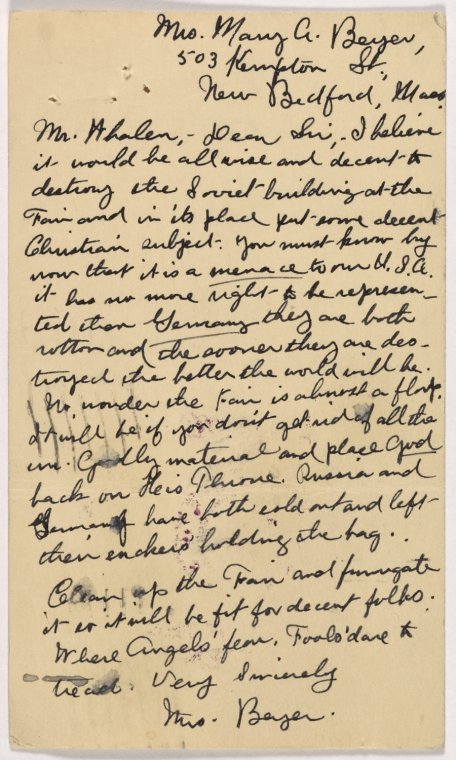 Mrs. Mary A. Beyer,
503 Kempton St,
New Bedford, Mass.
Mr. Whalen, - Dear Sir, - I believe
it would be all wise and decent to
destroy the Soviet building at the
Fair and in its place put some decent
Christian subject. You must know by
now that it is a menace to our U.S.A.
it has no more right to be represen-
ted than Germany they are both
rotton and the sooner they are des-
troyed the better the world will be.
No wonder the Fair is almost a flop.
It will be if you don't get rid of all the
un. Godly material and place God
back on His Throne. Russia and
Germany have both sold out and left
their suckers holding the bag..
Clean up the Fair and fumigate
it so it will be fit for decent folks.
Where Angels' fear, Fools' dare to
tread. Very Sincerely
Mrs. Beyer.